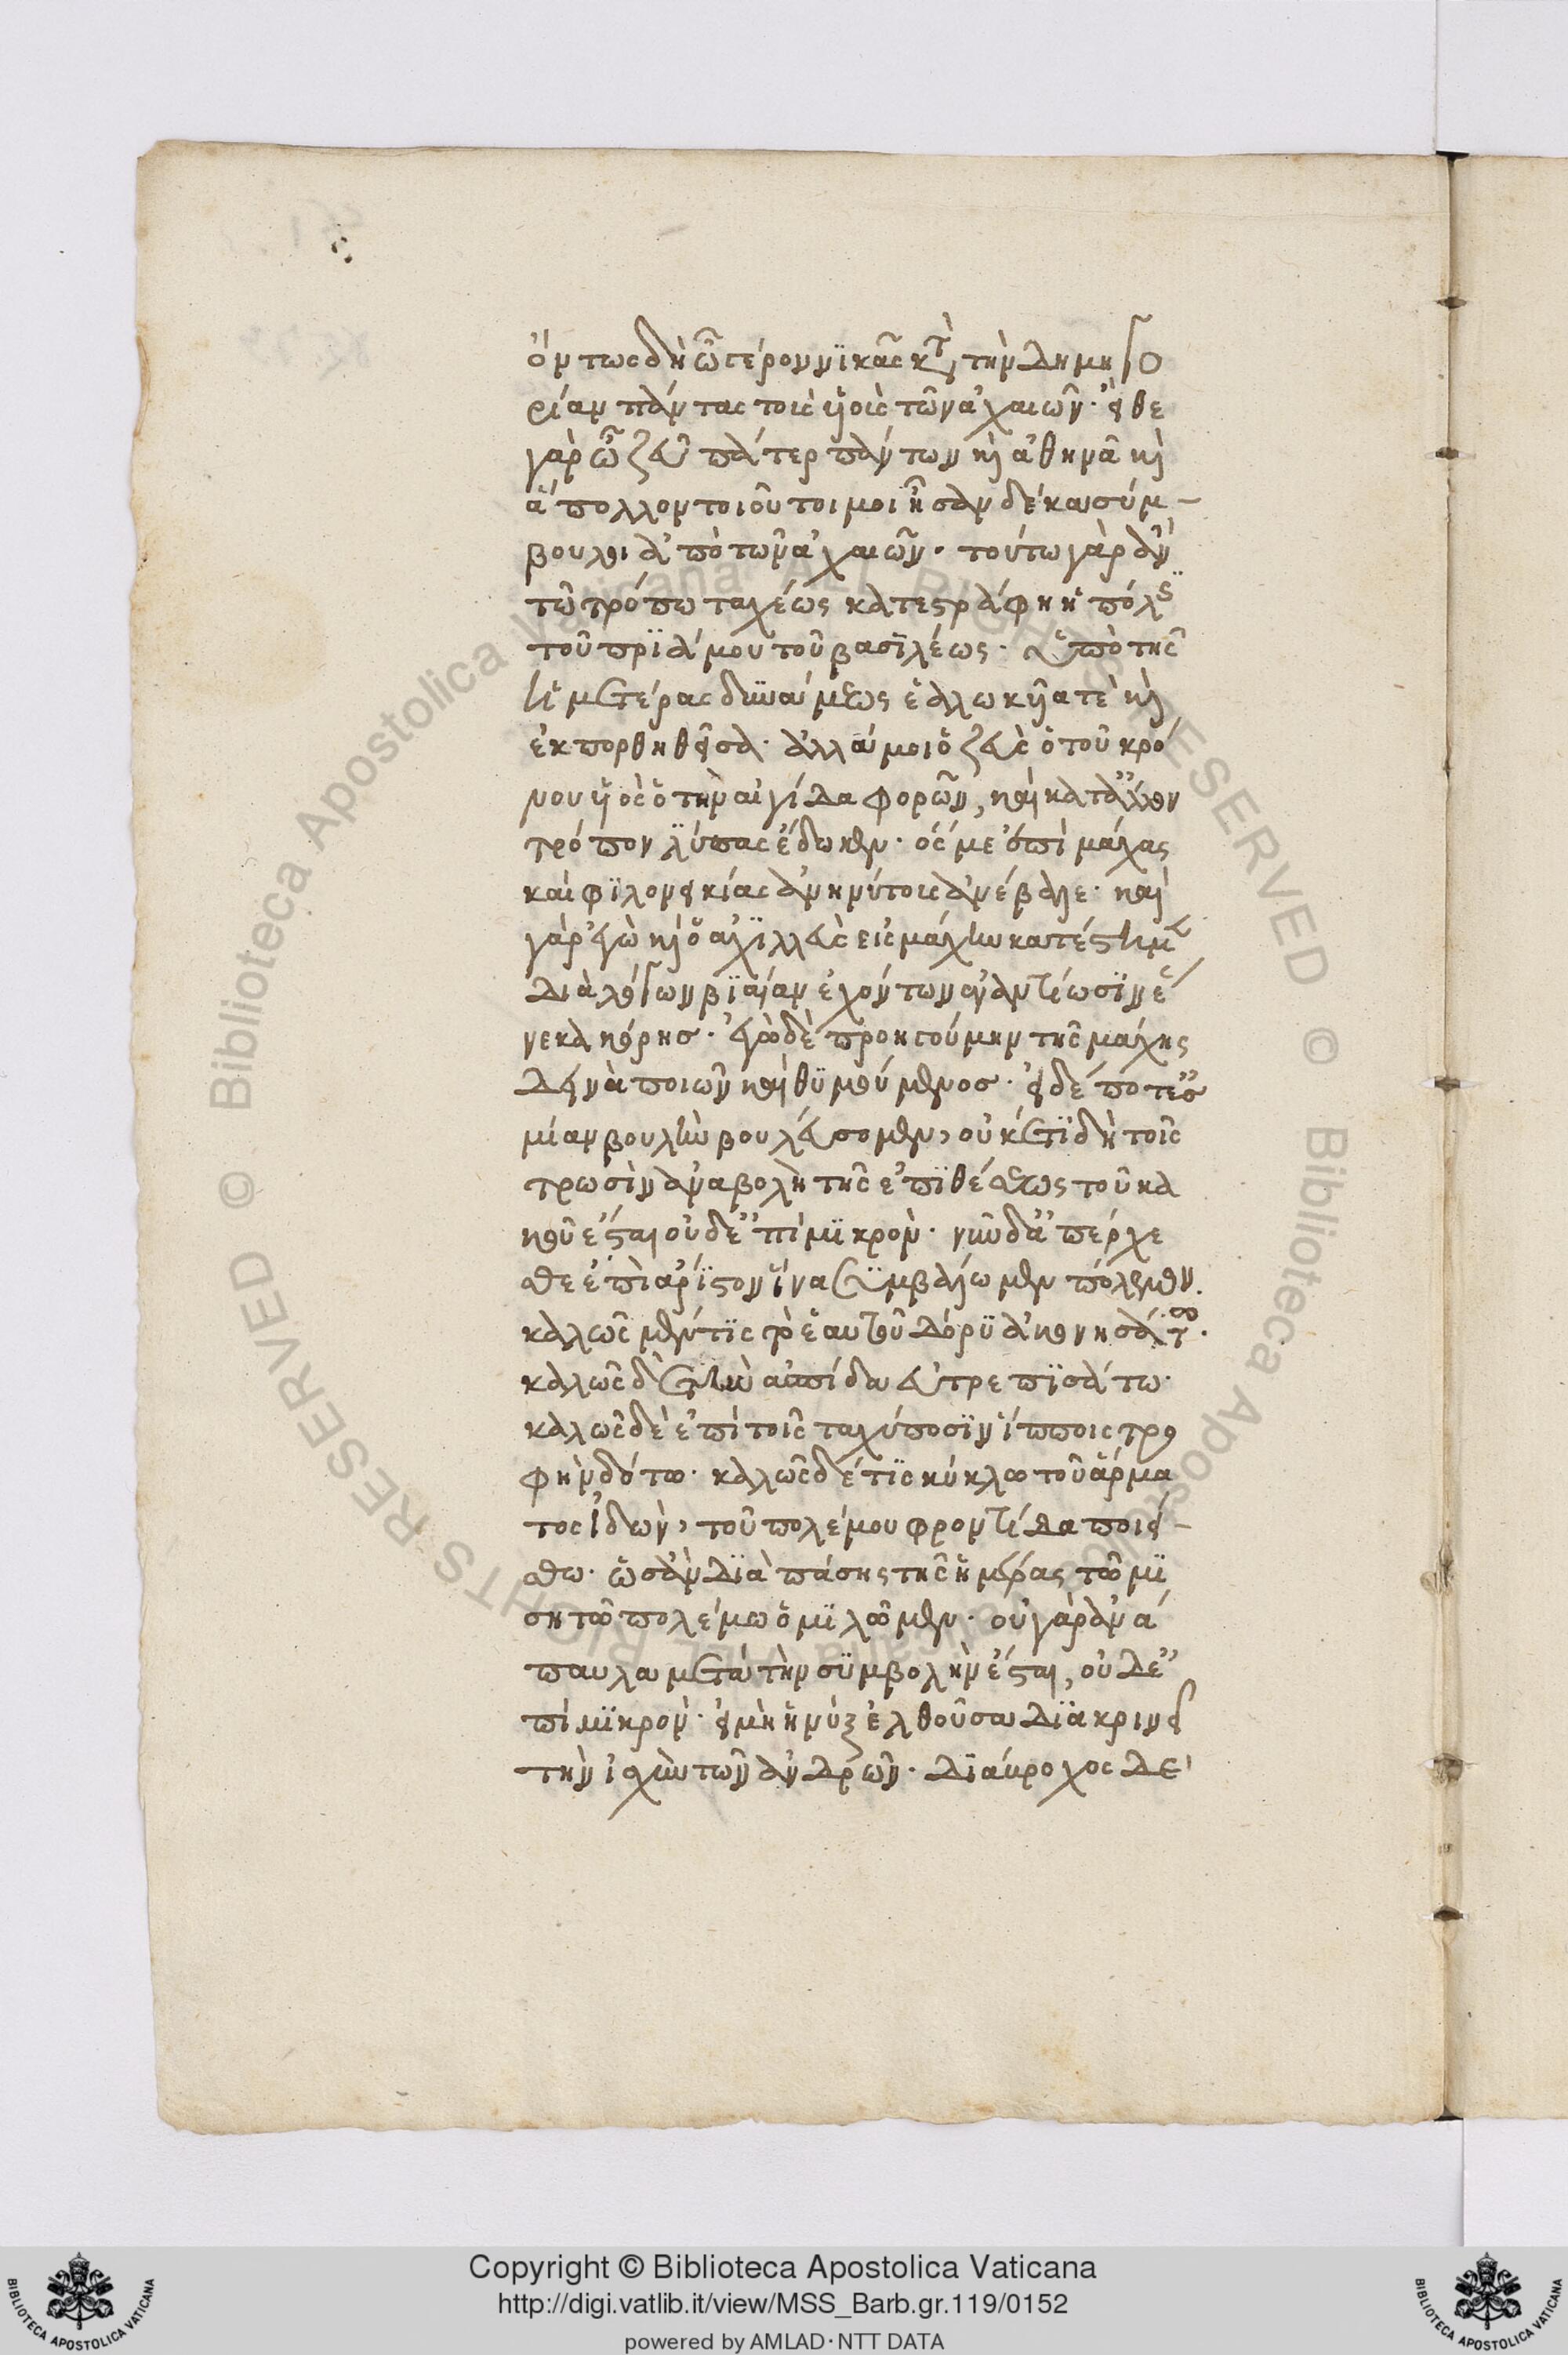 ὄντως δὴ ὦ γέρον νϊκᾶς κατὰ τὴν δημηγο
ρίαν πάντας τοὺς υἱοὺς τῶν ἀχαιῶν· εἴθε
γὰρ ὦ ζεῦ πάτερ πάντων καὶ ἀθηνᾶ καὶ
ἄπολλον τοιοῦτοι μοι ἦσαν δέκα σύμ-
βουλοι ἀπὸ τῶν ἀχαιῶν· τούτω γὰρ ἂν
τῶ τρόπω ταχέως κατεστράφη ἡ πόλϊς
τοῦ πρϊάμου τοῦ βασϊλέως· ὑπὸ τῆς
ἡμετέρας δυνάμεως ἑαλωκυῖα τὲ καὶ
ἐκπορθηθεῖσα· ἀλλά μοι ὁ ζεὺς ὁ τοῦ κρό
νου υἱὸς ὁ τὴν αἰγίδα φορῶν, καὶ κατάλληλον
τρόπον λύπας ἔδωκεν· ὅς με ἐπὶ μάχας
καὶ φϊλονεικίας ἀνηνύτους ἀνέβαλε· καὶ
γὰρ ἐγὼ καὶ ὁ ἀχϊλλεὺς εἰς μάχην κατέστημεν
διὰ λόγων βϊαίαν ἐχόντων ἐναντίωσϊν ἕ
νεκα κόρης· ἐγὼ δὲ προηγούμην τῆς μάχης
δεινὰ ποιῶν καὶ θϋμούμενος· εἰ δέ ποτε ἐς
μίαν βουλὴν βουλεύσομεν, οὐκέτϊ δὴ τοῖς
τρωσὶν ἀναβολὴ τῆς ἐπϊθέσεως τοῦ κα
κοῦ ἔσται οὐδ' ἐπὶ μϊκρὸν· νῦν δ' ἀπέρχε
σθε ἐπὶ ἄρϊστον ἵνα συμβάλωμεν πόλεμον.
καλῶς μέν τϊς τὸ ἑαυτοῦ δόρϋ ἀκονησάτω.
καλῶς δὲ τὴν ἀσπίδα εὐτρεπϊσάτω·
καλῶς δὲ ἐπὶ τοῖς ταχύποσϊν ἵπποις τρο
φὴν δότω· καλῶς δέ τϊς κύκλω τοῦ ἅρμα
τος ἰδὼν, τοῦ πολέμου φροντίδα ποιεί-
σθω· ὡς ἂν δϊὰ πάσης τῆς ἡμέρας τῶ μϊ
σητῶ πολέμω ὁμϊλῶμεν· οὐ γὰρ ἀνά
παυλα μετὰ τὴν σϋμβολὴν ἔσται, οὐδ' ἐ
πὶ μϊκρὸν· εἰ μὴ ἡ νὺξ ἐλθοῦσα δϊακρινεῖ
τὴν ἰσχὺν τῶν ἀνδρῶν. δϊάβροχος δὲ
Copyright © Biblioteca Apostolica Vaticana
http://digi.vatlib.it/view/MSS_Barb.gr.119/0152
powered by AMLAD·NTT DATA